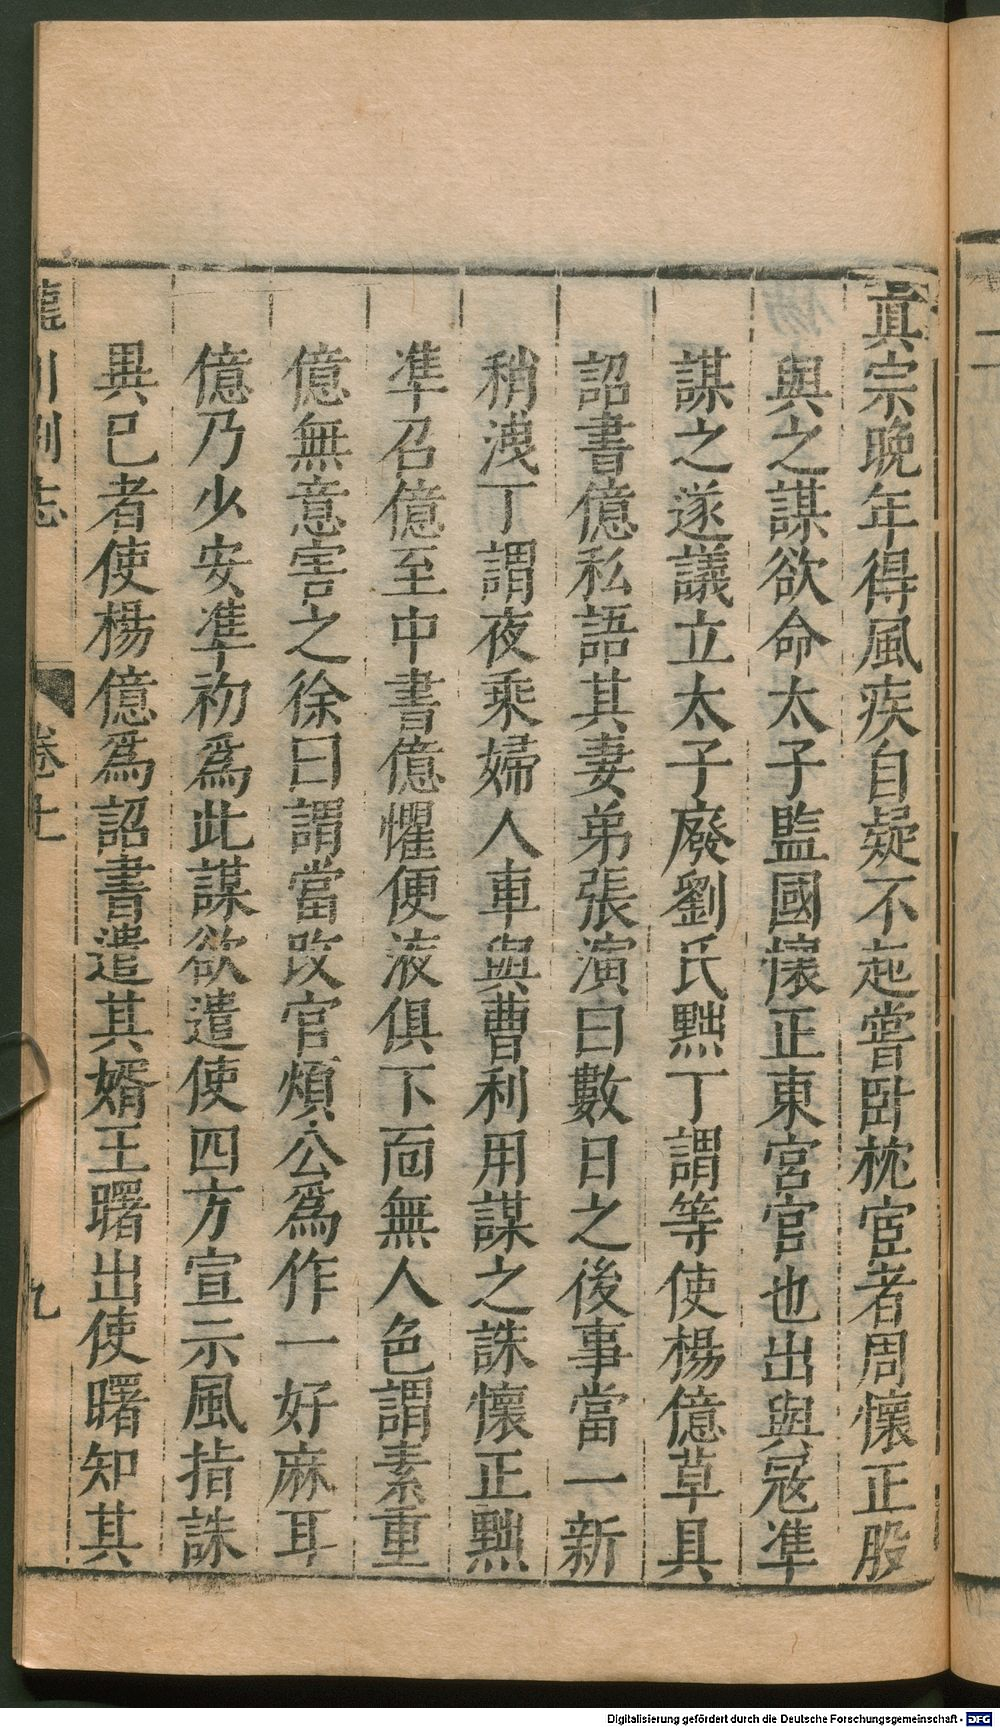 眞宗晚年得風疾自疑不起嘗臥枕宦者周懷正股
與之謀欲命太子監國懷正東宮官也出與冦準
謀之遂議立太子廢劉氏黜丁謂等使楊億草具
詔書億私語其妻弟張演曰數日之後事當一新
稍洩丁謂夜乘婦人車與曹利用謀之誅懷正黜
準召億至中書億懼便液俱下靣無人色謂素重
億無意害之徐曰謂當改官煩公爲作一好麻耳
億乃少安準初爲此謀欲遣使四方宣示風指誅
異巳者使楊億爲詔書遣其婿王曙出使曙知其
龍川別志 卷上 九
Digitalisierung gefördert durch die Deutsche Forschungsgemeinschaft - DFG